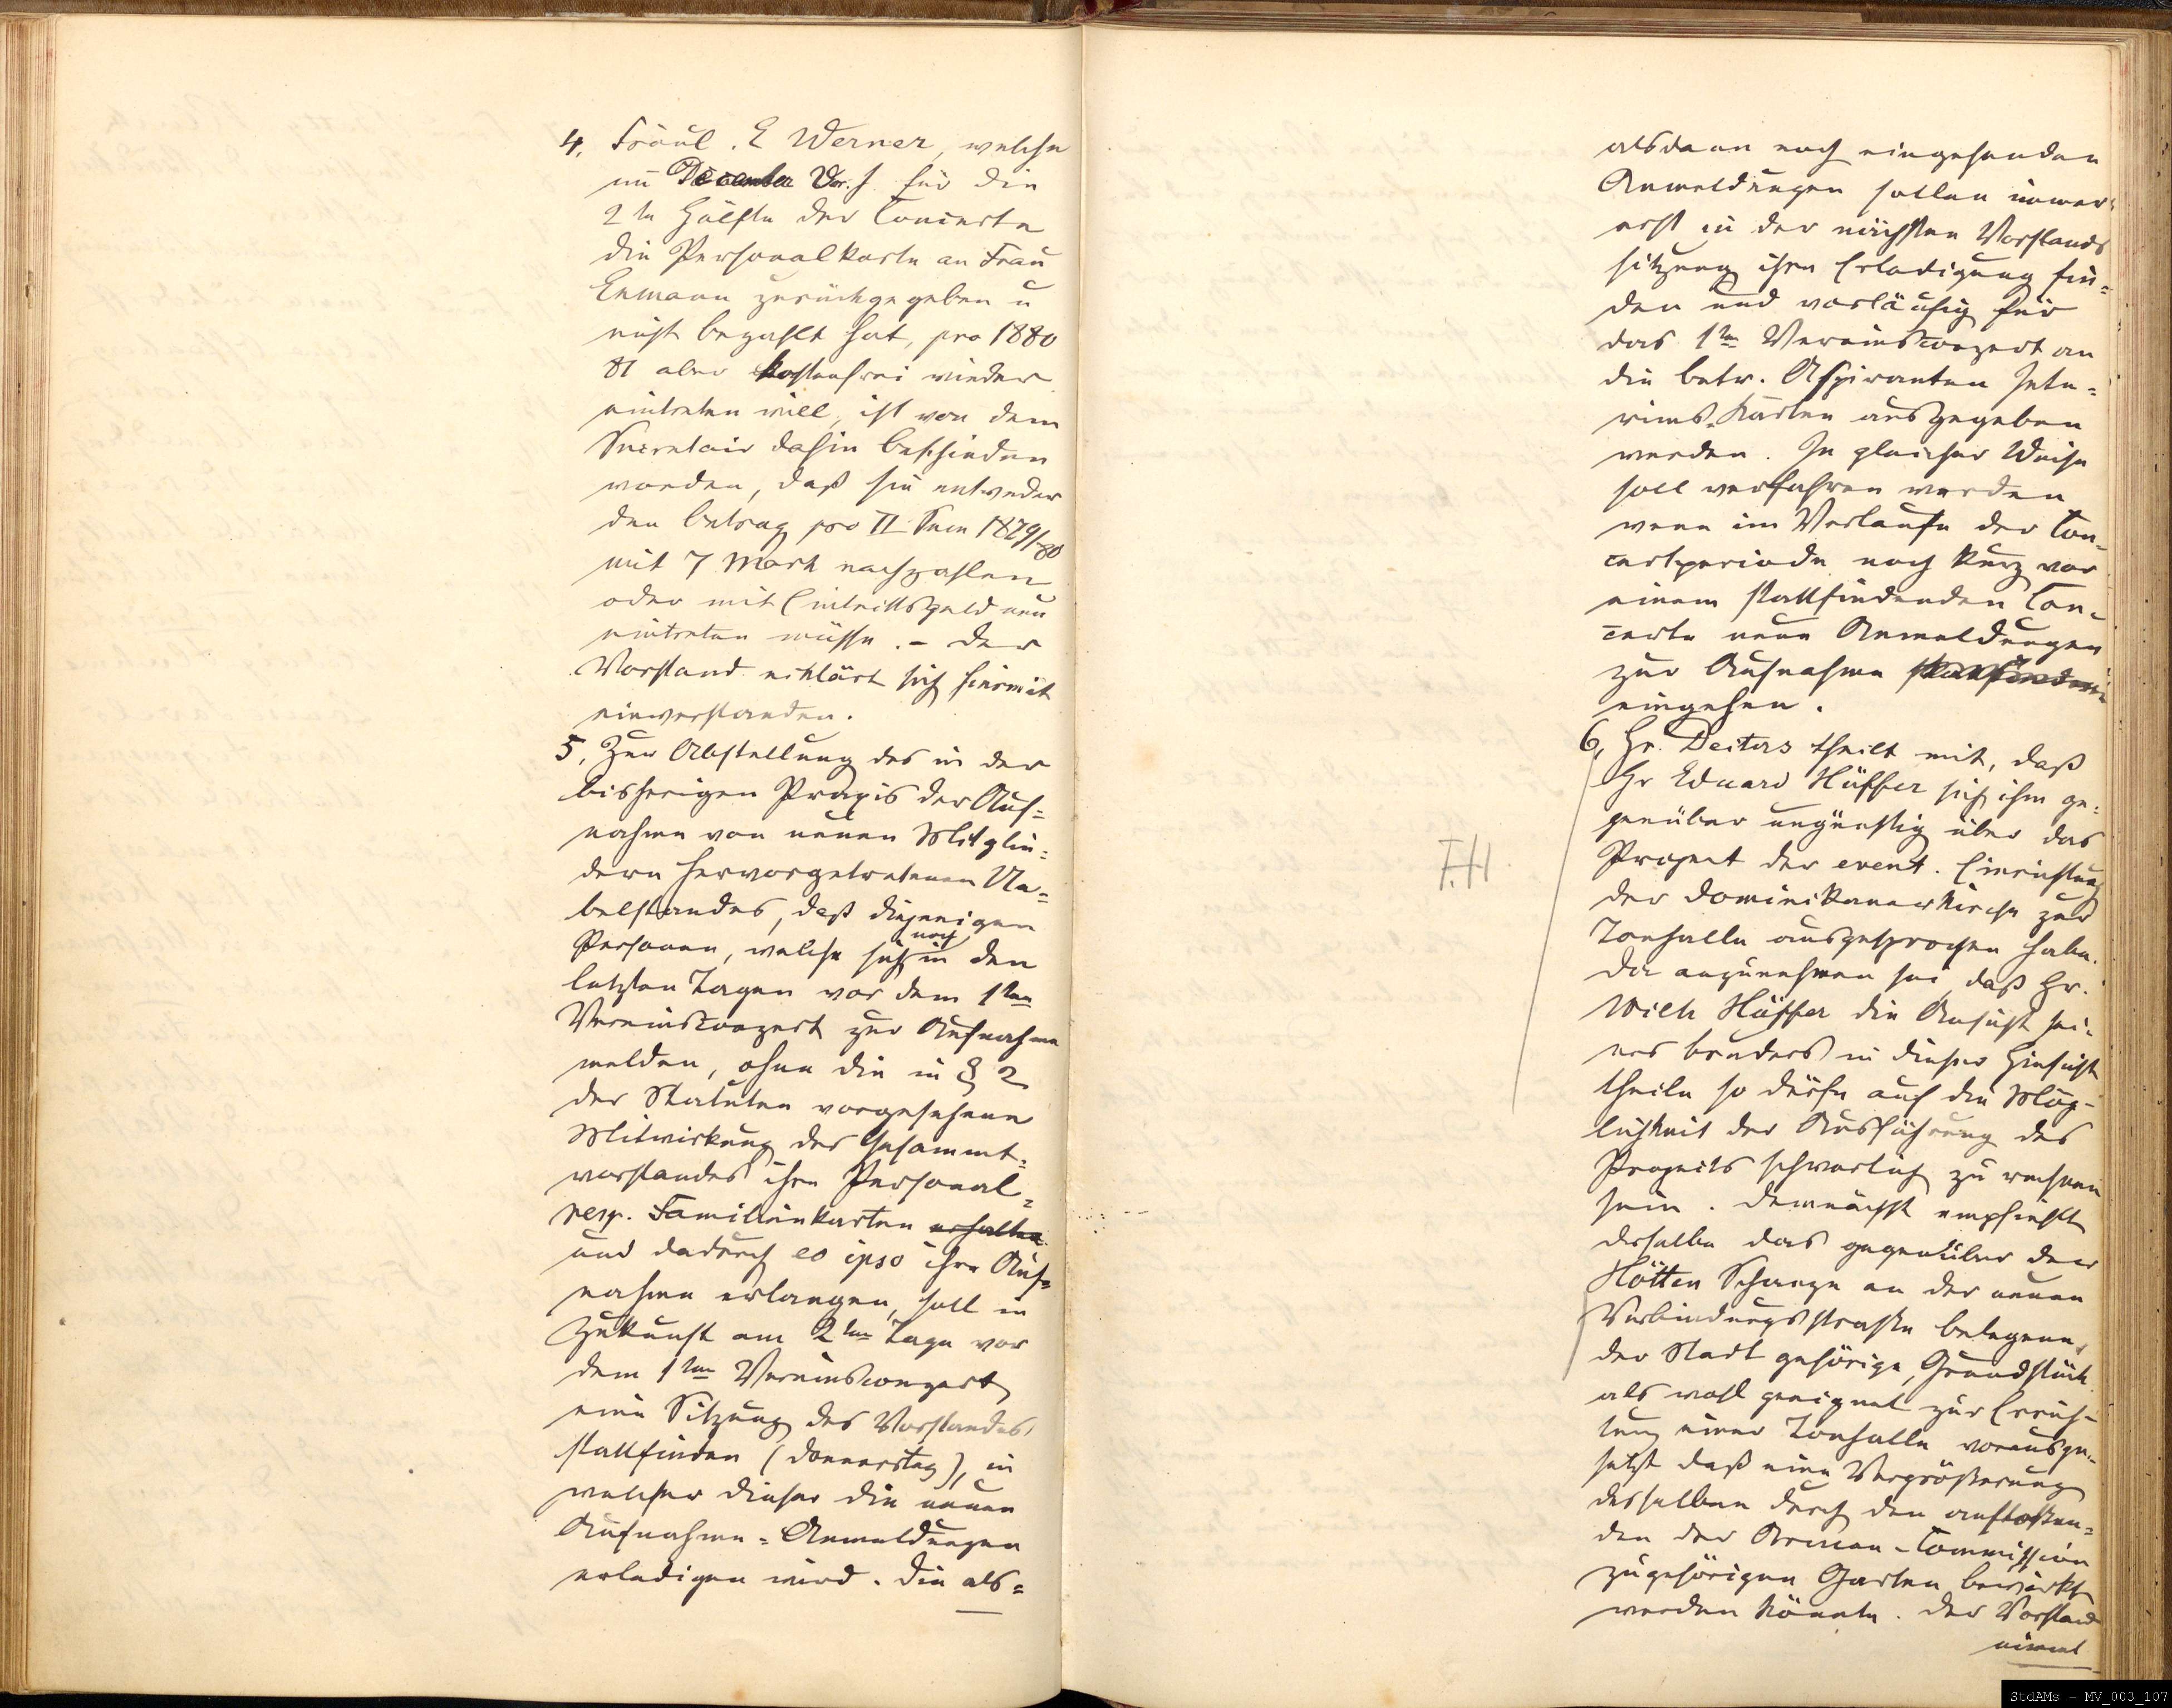 4, Fräul. E Werner, welche
im December Vor. J. für die
2te Hälfte der Concerte
die Personalkarte an Frau
Enmann zurückgegeben u
nicht bezahlt hat, pro 1880
81 aber kostenfrei wieder
eintreten will, ist von dem
Secretair dahin beschieden
worden, daß sie entweder
den betrag pro II Sem 1879/80
mit 7 Mark nachzahlen
oder mit Eintrittsgeld neu
eintreten müsse. – Der
Vorstand erklärt sich hiermit
einverstanden.
5, Zur Abstellung des in der
bisherigen Praxis der Auf=
nahme von neuen Mitglie=
dern hervorgetretenen Ue=
belstandes, daß diejenigen
Personen, welche sich noch in den
letzten Tagen vor dem 1ten
Vereinsconzert zur Aufnahme
melden, ohne die in § 2
der Statuten vorgesehene
Mitwirkung des Gesammt=
vorstandes ihre Personal=
resp. Familienkarten erhalten
und dadurch eo ipso ihre Auf=
nahme erlangen, soll in
Zukunft am 2ten Tage vor
dem 1ten Vereinsconzert
eine Sitzung des Vorstandes
stattfinden (Donnerstag), in
welcher dieser die neuen
Aufnahme=Anmeldungen
erledigen wird. Die als=
alsdann noch eingehenden
Anmeldungen sollen immer
erst in der nächsten Vorstands
sitzung ihre Erledigung fin=
den und vorläufig für
das 1te Vereinsconzert an
die betr. Aspiranten Inte=
rims-Karten ausgegeben
werden. In gleicher Weise
soll verfahren werden
wenn im Verlaufe der Con=
certperiode noch kurz vor
einem stattfindenden Con=
certe neue Anmeldungen
zur Aufnahme stattfinden
eingehen.
6, Hr. Deiters theilt mit, daß
Hr Eduard Hüffer sich ihm ge=
genüber ungünstig über das
Project der event. Einrichtung
der Dominikanerkirche zur
T.H.
Tonhalle ausgesprochen habe.
Da anzunehmen sei, daß Hr.
Wilh Hüffer die Ansicht sei=
nes bruders in dieser Hinsicht
theile so dürfe auf die Mög=
lichkeit der Ausführung des
Projects schwerlich zu rechnen
sein. Demnächst empfiehlt
derselbe das gegenüber der
Hötten Schanze an der neuen
Verbindungsstraße belegene,
der Stadt gehörige, Grundstück
als wohl geeignet zur Errich=
tung einer Tonhalle vorausge=
setzt daß eine Vergrößerung
desselben durch den anstoßen=
den der Armen-Commission
zugehörigen Garten bewirkt
werden könnte. Der Vorstand
nimmt
StdAMs - MV_003_107